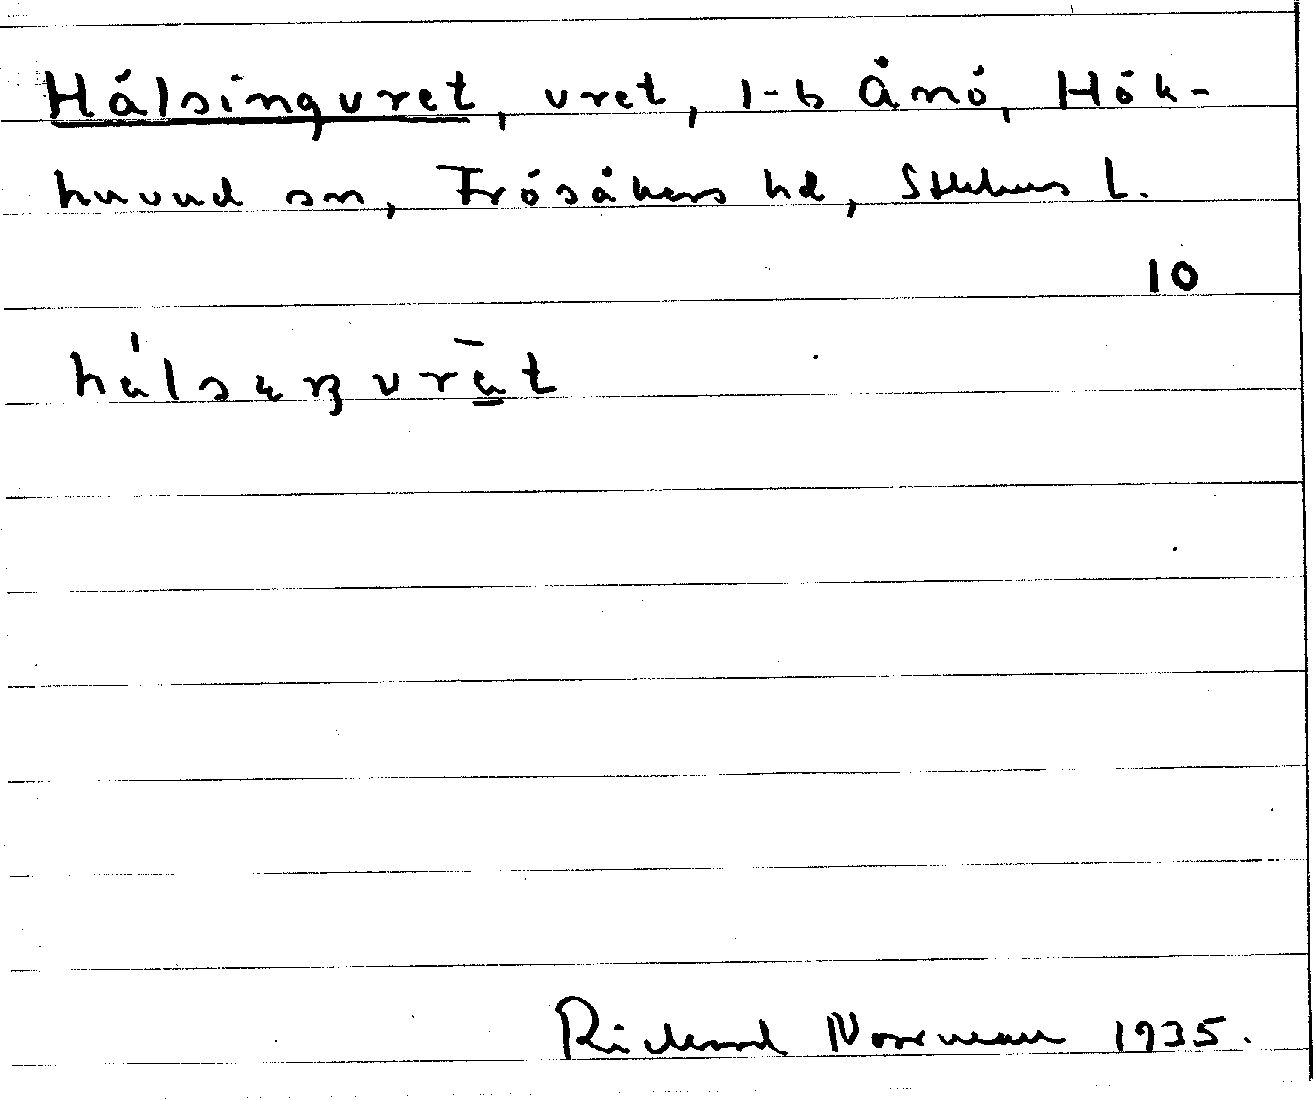 Hälsingvret, vret, 1-b Ånö, Hök-
huvud sn, Frösåkers hd, Sthlms l.
10
hälsıŋvrät
Rickard Norrman 1935.